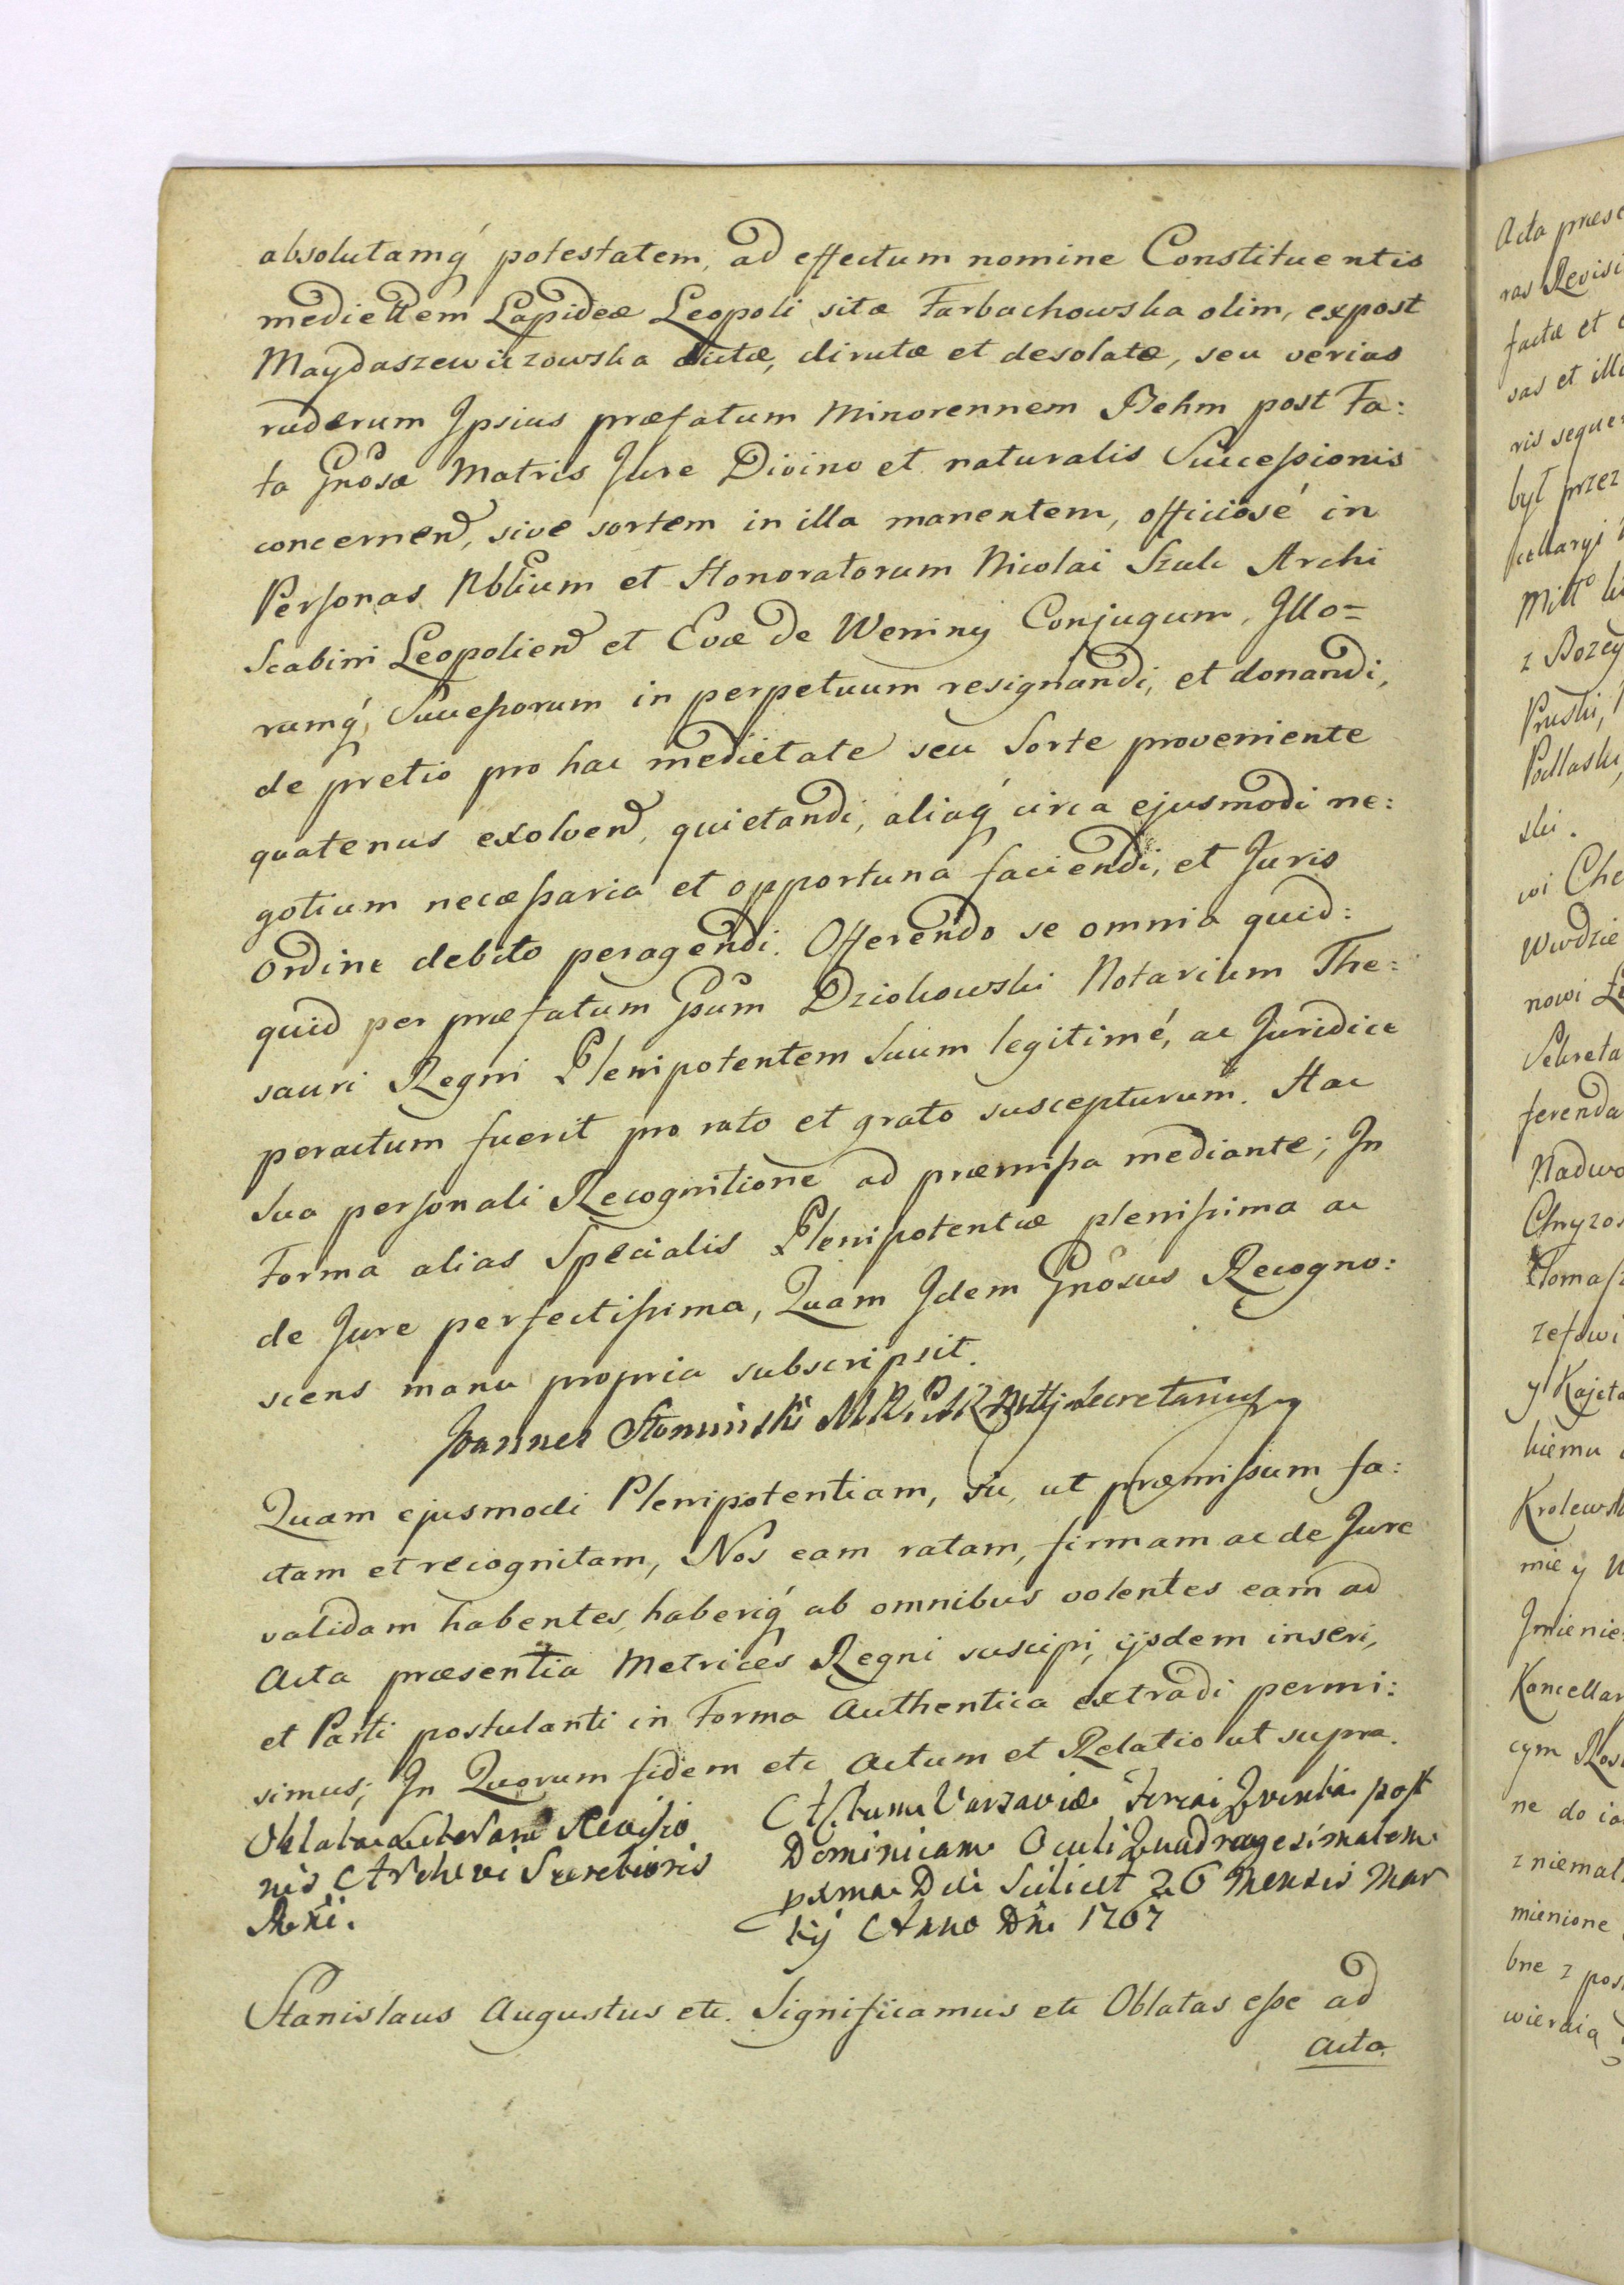 absolutamq́ potestatem, ad effectum nomine Constituentis
mediettem Lapideæ Leopoli sitæ Farbachowska olim, expost
Maydaszewiczowska dictæ, dirutæ et desolatæ, seu verius
ruderum Ipsius præfatum Minorennem Behm post Fa:
ta Gnosæ Matris Jure Divino et naturalis Successionis
concernend, sive sortem in illa manentem, officiosé in
Personas Nblium et Honoratorum Nicolai Szulc Archi
Scabini Leopoliend et Evæ de Weniny Conjugum, Illo=
rumq́, Successorum in perpetuum resignandi, et donandi,
de pretio pro hac medietate seu Sorte proveniente
quatenus exolvend, quietandi, aliaq́ circa ejusmodi ne:
gotium necæssaria et opportuna faciendi, et Juris
Ordine debito peragendi. Offerendo se omnia quid:
quid per præfatum Gsum Dziokowski Notarium The:
sauri Regni Plenipotentem Suum legitimé, ac Juridice
peractum fuerit pro rato et grato suscepturum. Hac
Sua personali Recognitione ad præmissa mediante; In
Forma alias Specialis Plenipotentiæ plenissima ac
de Jure perfectissima, Quam Idem Gnosus Recogno:
scens manu propria subscripsit.
Joannes Słomiński Secretarius
Quam ejusmodi Plenipotentiam, sic, ut præmissum fa:
ctam et recognitam, Nos eam ratam, firmam ac de Jure
validam habentes, haberiq́ ab omnibus volentes eam ad
Acta præsentia Metrices Regni suscipi, ijsdem inseri,
et Parti postulanti in Forma Authentica extradi permi:
simus; In Quorum fidem etc Actum et Relatio ut supra.
Oblata Literarum Revisio
nis Archivi Secretioris
Rni.
Actum Varsaviæ Feria Quinta post
Dominicam Oculi Quadragesimalem
pxma Die Scilicet 26 Mensis Mar
tij Anno Dni 1767
Stanislaus Augustus etc. Significamus etc Oblatas esse ad
Acta